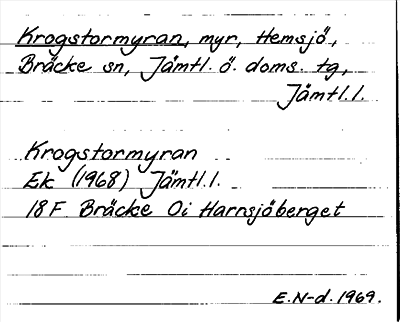 Krogstormyran, myr, Hemsjö,
Bräcke sn, Jämtl. ö. doms. tg,
Jämtl.l.
Krogstormyran
Ek (1968) Jämtl.l.
18F Bräcke 0i Harnsjöberget
E.N-d. 1969.